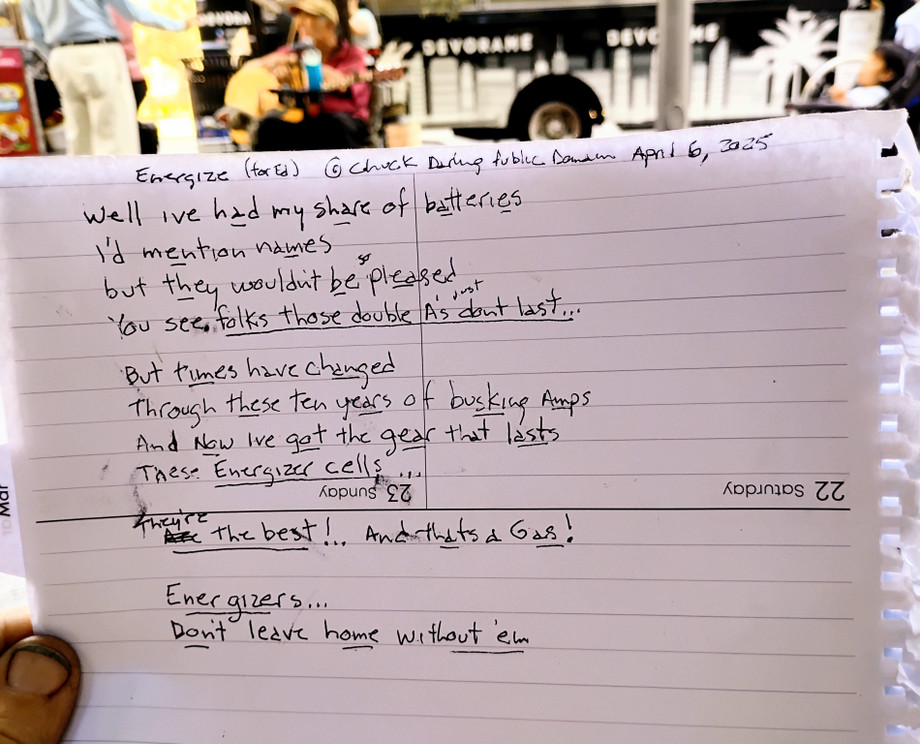 DEVORAME
DEVO
Energize (for Ed) © Chuck During Public Domain April 6, 2025
Well ive had my share of batteries
I'd mention names
but they wouldn't be so pleased
You see, folks those double A's just dont last...
But times have changed
Through these ten years of busking Amps
And Now Ive got the gear that lasts
These Energizer cells ...
23 Sunday
22 Saturday
They're the best!... And thats a Gas!
Energizers...
Don't leave home without 'em
Mar